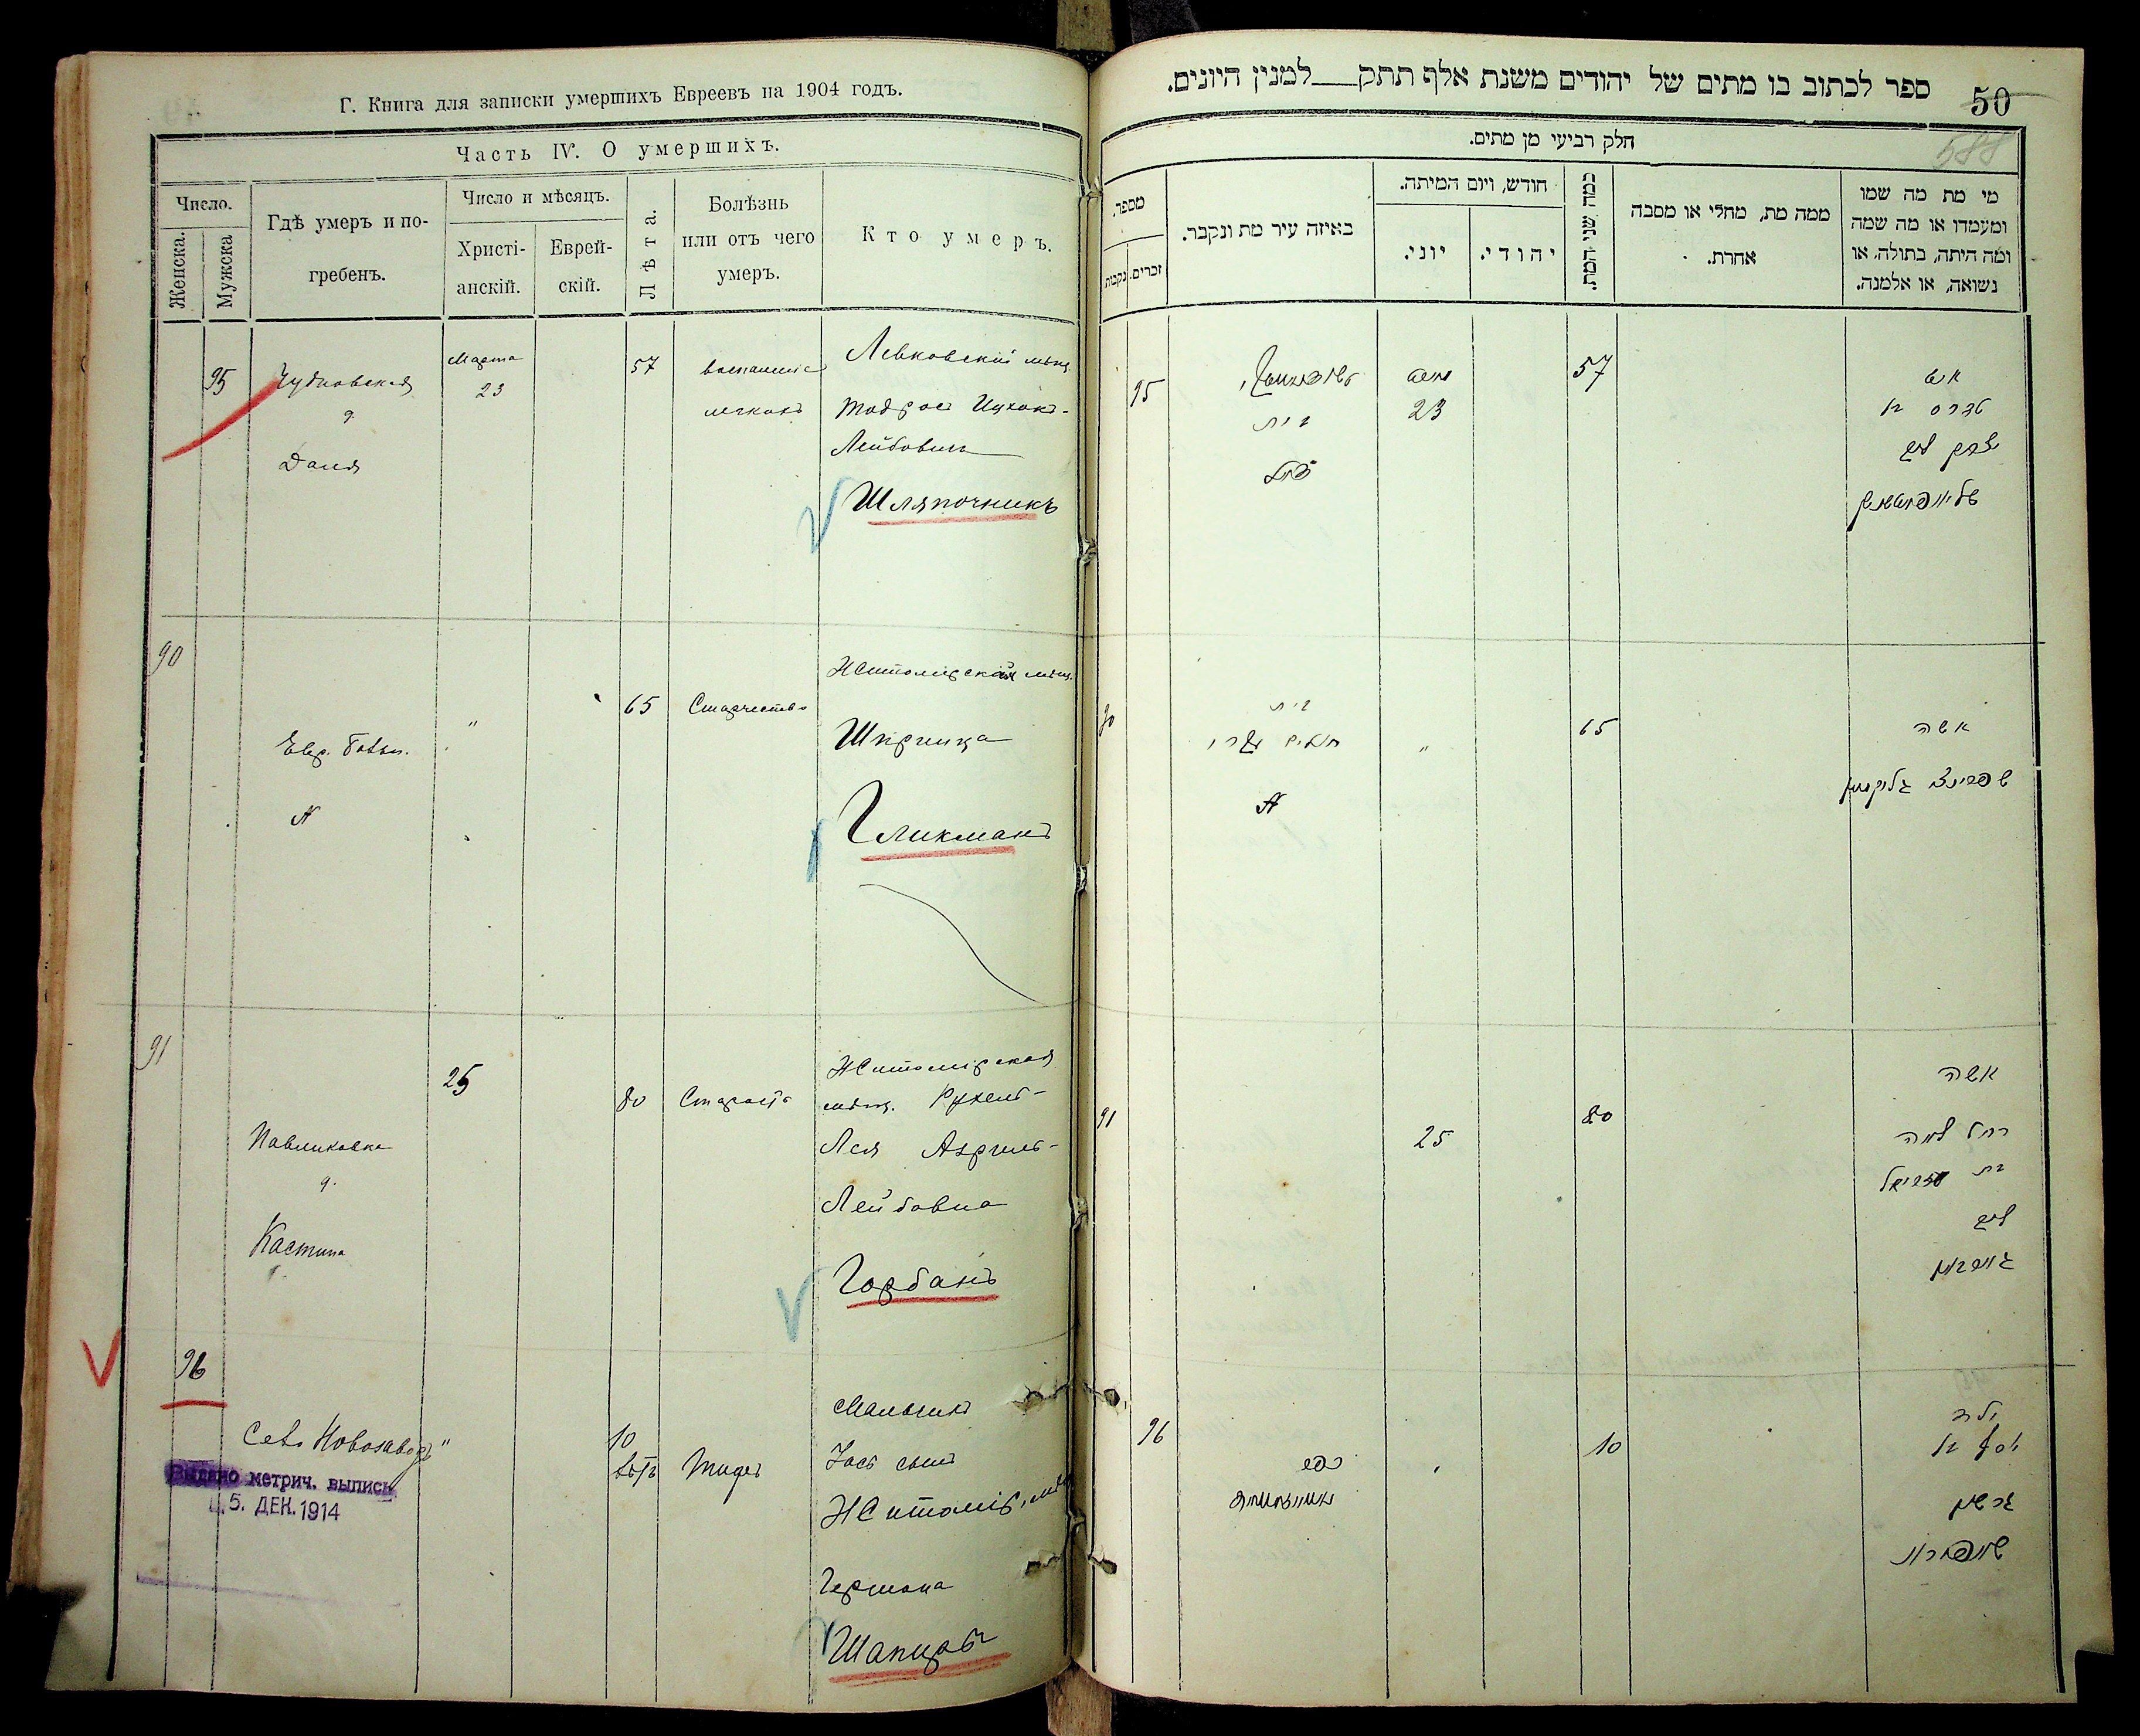 Г. Книга для записки умершихъ Евреевъ на 1904 годъ.
Часть IV. О умершихъ.
Число.
Женска.
Мужска
Гдѣ умеръ и по-
гребенъ.
Число и мѣсяцъ.
Христі-
анскій.
Еврей-
скій.
Лѣта.
Болѣзнь
или отъ чего
умеръ.
Кто умеръ.
95
Чудновская
д.
Даля
Марта
23
57
воспаленіе
легкихъ
Левковскій мѣщ.
Тодрос Ицхокъ-
Лейбовичъ
Шляпочникъ
90
Евр. Больн.
"
65
Старчество
Житомірская мѣщ.
Шпринца
Гликманъ
91
Павликовка
д.
25
80
Старость
Житомірская
мѣщ. Рухель-
Лея Азриль-
Лейбовна
Горбанъ
96
Село Новозаводъ
"
10
лѣтъ
Тифъ
Мальчикъ
Іось сынъ
Житомір. мѣщ
Гершона
Шапиро
Выдано метрич. выпись
5. ДЕК. 1914
ספר לכתוב בו מתים של יהודים משנת אלף תתק___למנין היונים.
50
588
חלק רביעי מן מתים.
מספר.
זכרים.
נקבות
באיזה עיר מת ונקבר.
חודש, ויום המיתה.
יוני.
יהודי.
כמה שני המת.
ממה מת, מחלי או מסבה
אחרת.
מי מת מה שמו
ומעמדו או מה שמה
ומה היתה, בתולה, או
נשואה, או אלמנה.
95
בית
23
57
איש
טדרס בן
יצחק ליב
90
בית
"
65
אשה
שפרינצא גליקמאן
91
25
80
אשה
רחל לאה
בת עזריאל
ליב
גארבאן
96
כפר
10
ילד
יוסף בן
גרשון
שאפירא